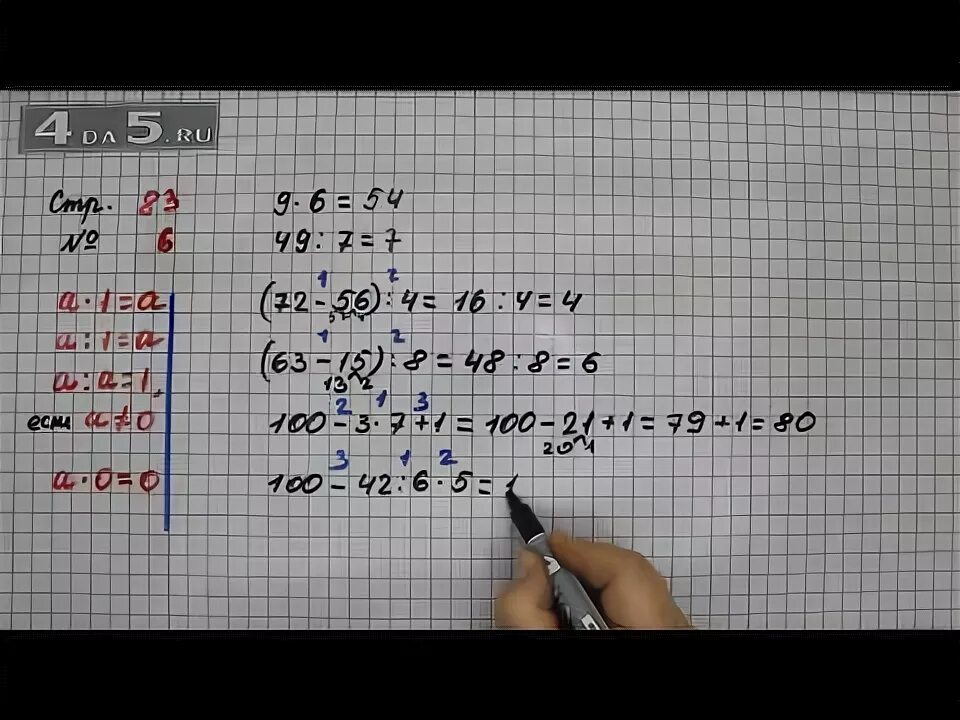 4DA5.RU
Стр. 83
№ 6
a · 1 = a
a : 1 = a
a : a = 1,
если a ≠ 0
a · 0 = 0
9 · 6 = 54
49 : 7 = 7
1 2
(72 - 56) : 4 = 16 : 4 = 4
1 2
(63 - 15) : 8 = 48 : 8 = 6
13 2
2 1 3
100 - 3 · 7 + 1 = 100 - 21 + 1 = 79 + 1 = 80
20 1
3 1 2
100 - 42 : 6 · 5 = 1